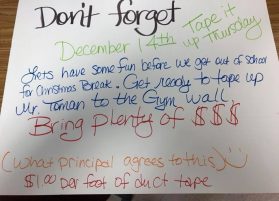 Don't forget
December 14th Tape it
up Thursday
Lets have some fun before we get out of school
for Christmas Break. Get ready to tape up
Mr. Toman to the Gym wall.
Bring plenty of $$$
(What principal agrees to this)
$1.00 per foot of duct tape